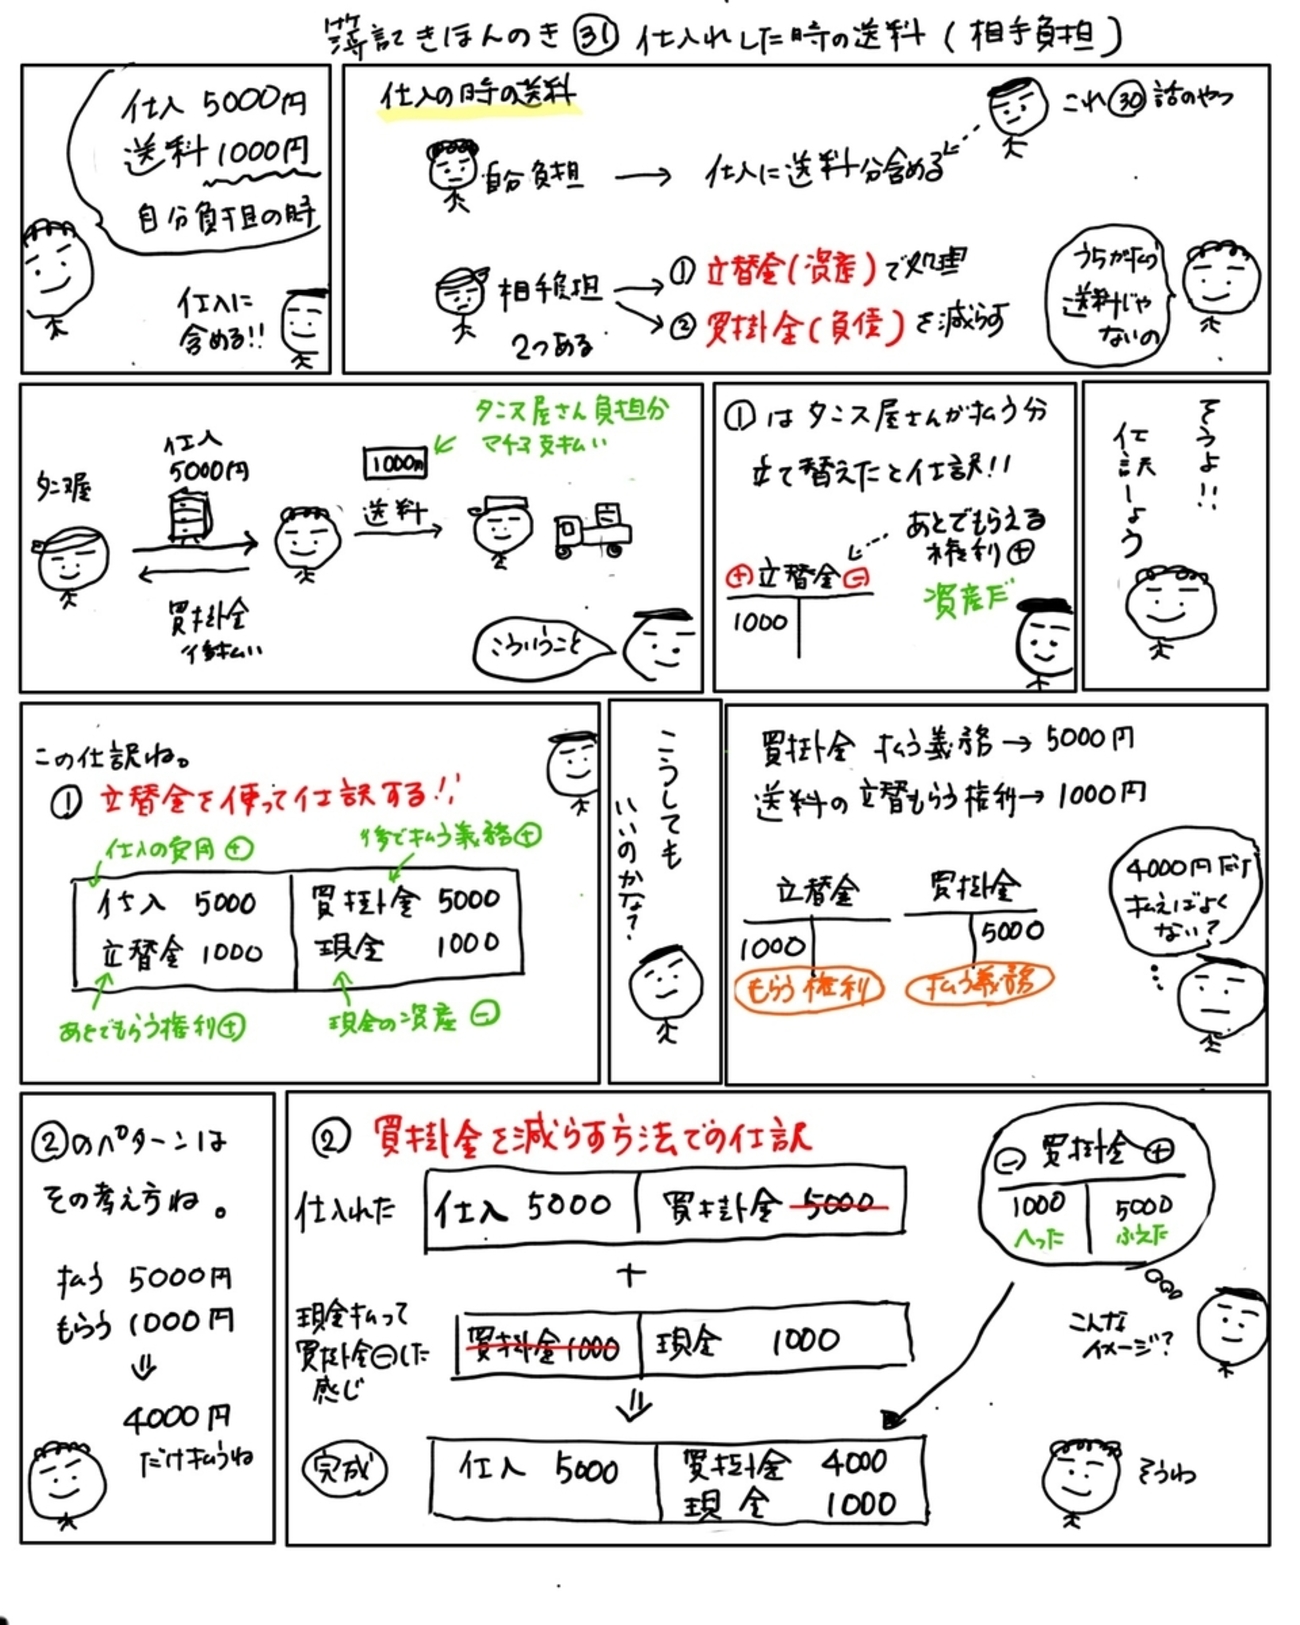 簿記きほんのき㉛仕入れした時の送料（相手負担）
仕入 5000円
送料 1000円
自分負担の時
仕入に
含める!!
仕入の時の送料
これ㉚話のやつ
自分負担 → 仕入に送料分含める
相手負担
2つある
① 立替金(資産)で処理
② 買掛金(負債)を減らす
うちが払う
送料じゃ
ないの
タンス屋
仕入
5000円
買掛金
後払い
1000円
送料
タンス屋さん負担分
マチコ支払い
こういうこと
①はタンス屋さんが払う分
立て替えたと仕訳!!
あとでもらえる
権利⊕
資産だ
⊕立替金⊖
1000
そうよ!!
仕訳しよう
この仕訳ね。
① 立替金を使って仕訳する!!
仕入の費用⊕
後で払う義務⊕
仕入 5000 買掛金 5000
立替金 1000 現金 1000
あとでもらう権利⊕
現金の資産⊖
こうしても
いいのかな?
買掛金 払う義務→5000円
送料の立替もらう権利→1000円
立替金
1000
もらう権利
買掛金
5000
払う義務
4000円だけ
払えばよく
ない?
②のパターンは
その考え方ね。
払う 5000円
もらう 1000円
⇓
4000円
だけ払うね
② 買掛金を減らす方法での仕訳
仕入れた
仕入 5000 買掛金 5000
+
現金払って
買掛金⊖した
感じ
買掛金 1000 現金 1000
⇓
完成
仕入 5000 買掛金 4000
現金 1000
⊖買掛金⊕
1000 5000
へった ふえた
こんな
イメージ?
そうね